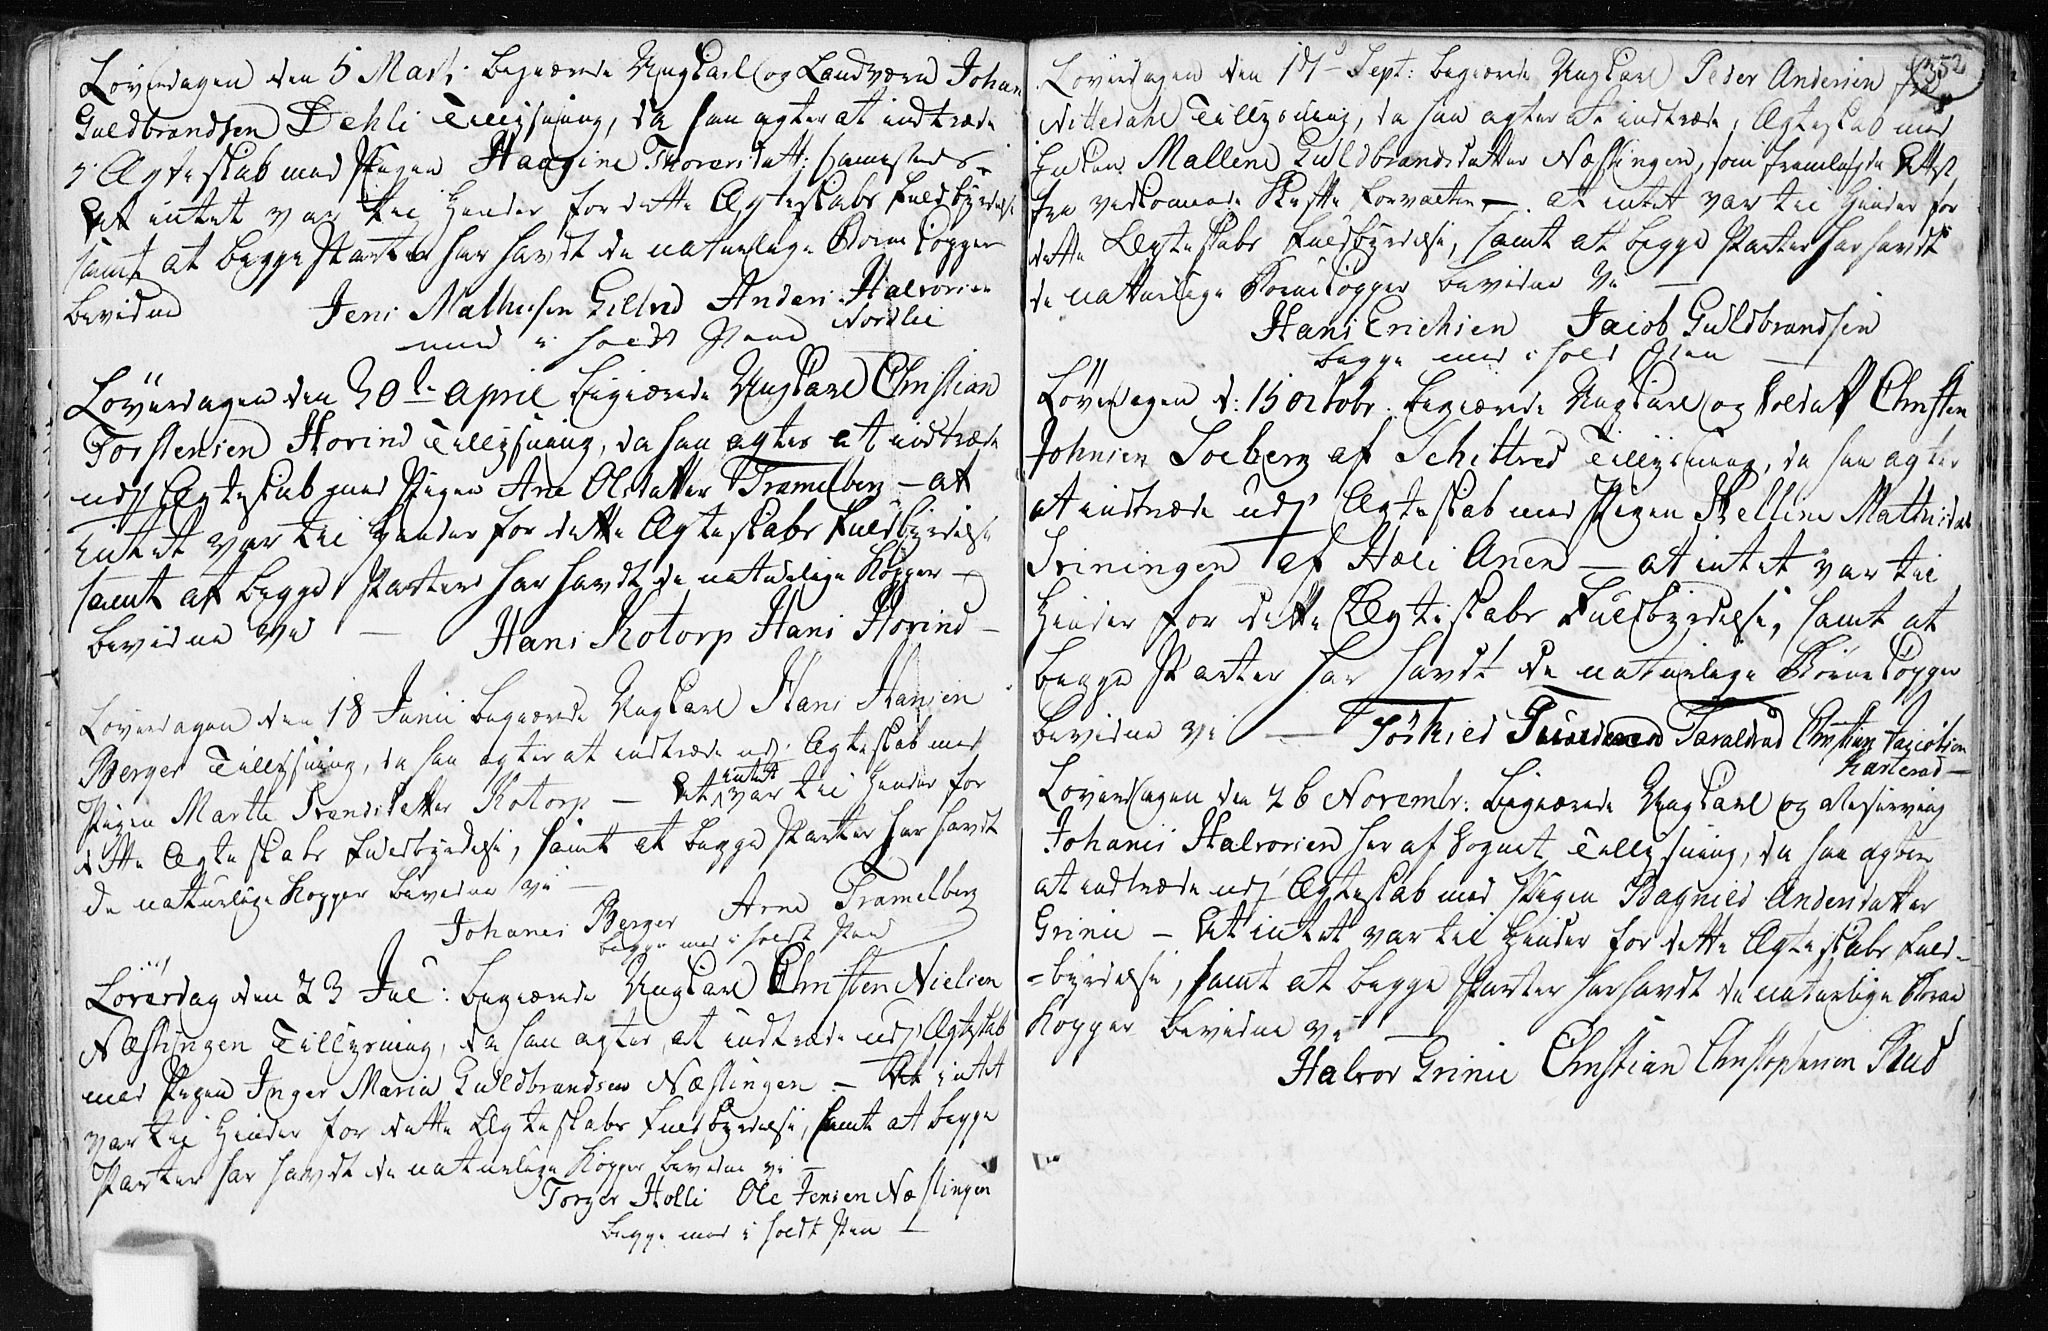 Löverdagen den 5 Marti: begiærede Ungkarl og Landværn Johan
Guldbrandsen Dehli Tillysning, da han agter at indtræde
i Ægteskab med Pigen Haagine Thorersdatt: sammesteds –
At intet var til Hinder for dette Ægteskabs Fuldbyrdelse
samt at begge Parter har havdt de naturlige Börne Kopper
bevidne Jens Mathesen Gillerd Anders Halvorsen
Nordlie
med i holdt Pend
Löverdagen den 30te April begiærede Ungkarl Christian
Torstensen Hovind Tillysning, da han agter at indtræde
udj Ægteskab med Pigen Ane Olsdatter Tramelberg – at
intet var til Hinder for dette Ægteskabs Fuldbyrdelse
samt at begge Parter har havdt de naturlige Kopper –
bevidne vi – Hans Kotorp Hans Hovind –
Löverdagen den 18 Junii begiærede Ungkarl Hans Hansen
Berger Tillysning, da han agter at indtræde udj Ægteskab med
Pigen Marthe Trondsdatter Kotorp – At intet var til Hinder for
dette Ægteskabs Fuldbyrdelse, samt at begge Parter har havdt
de naturlige Kopper bevidne vi –
Johanes Berger Arne Tramelberg
begge med i holdt Pen
Löverdag den 23 Jul: begiærede Ungkarl Christen Nielsen
Næslingen Tillysning, da han agter at indtræde udj Ægteskab
med Pigen Inger Maria Guldbrandsen Næslingen – At intet
var til Hinder for dette Ægteskabs Fuldbyrdelse, samt at begge
Parter har havdt de naturlige Kopper bevidne vi –
Torger Holli Ole Jensen Næslingen
begge med i holdt Pen –
352
Löverdagen den 17d Sept: begiærede Ungkarl Peder Andersen fra
Nittedahl Tillysning, da han agter at indtræde i Ægteskab med
Enken Mallene Guldbrandsdatter Næslingen, som fremlagde Attest
fra vedkomende Skifte Forvalter – at intet var til Hinder for
dette Ægteskabs Fuldbyrdelse, samt at begge Parter har havdt
de naturlige Börnekopper bevidne vi –
Hans Erichsen Jacob Guldbrandsen
begge med i hold Pen –
Löverdagen d: 15 octobr. begiærede Ungkarl og Soldatt Christen
Johnsen Soeberg af Schittred Tillysning, da han agter
at indtræde udj Ægteskab med Pigen Pelline Mathisdat
Sriningen af Hole Anex – at intet var til
Hinder for dette Ægteskabs Fuldbyrdelse, samt at
begge Parter har havdt de naturlige Börnekopper
bevidne vi – Törkild Taraldrud Christian Jacobsen
Karterud –
Löverdagen den 26 Novembr: begiærede Ungkarl og
Johanes Halvorsen her af Sognet Tillysning, da han agter
at indtræde udj Ægteskab med Pigen Ragnild Andersdatter
Grinii – At intet var til Hinder for dette Ægteskabs Fuld-
-byrdelse, samt at begge Parter har havdt de naturlige Börne
Kopper bevidne vi –
Halvor Grinii Christian Christophersen Rud